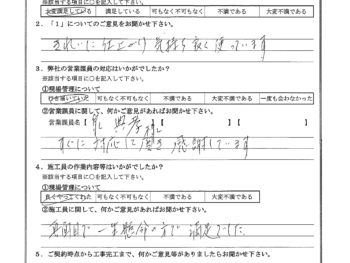 ※該当する項目に○を記入して下さい。
大変満足している 満足している 可もなく不可もなく 不満である 大変不満である
2．「1」についてのご意見をお聞かせ下さい。
きれいに仕上がり 気持ち良く使っています
3．弊社の営業課員の対応はいかがでしたか？
※該当する項目に○を記入して下さい。
①現場管理について
行き届いていた 可もなく不可もなく 不満である 大変不満である 一度も会わなかった
②営業課員に関して、何かご意見があればお聞かせ下さい。
営業課員名【 】【 】【 】
すぐに対応して頂き 感謝しています
4．施工員の作業内容等はいかがでしたか？
※該当する項目に○を記入して下さい。
①現場管理について
良くやってくれた 可もなく不可もなく 不満である 大変不満である
②施工員に関して、何かご意見があればお聞かせ下さい。
真面目で 一生懸命の方で 満足でした
5．ご契約時点から工事完工まで、何かご意見等がありましたらお聞かせ下さい。